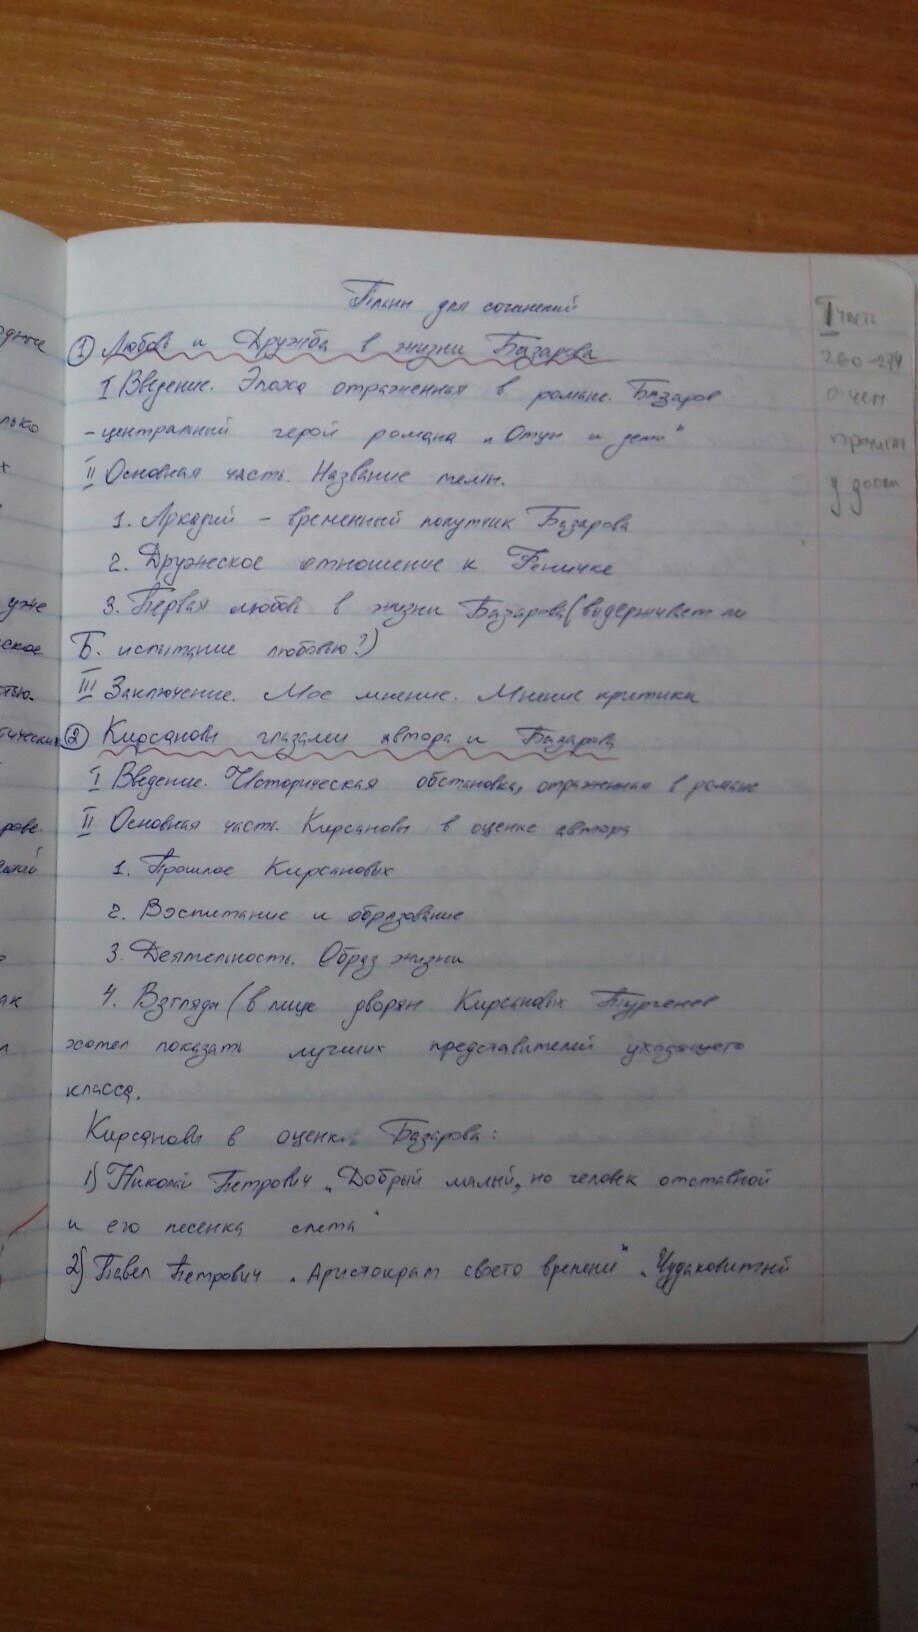 Планы для сочинений
① Любовь и Дружба в жизни Базарова
I Введение. Эпоха отраженная в романе. Базаров
- центральный герой романа „Отцы и дети"
II Основная часть. Название темы.
1. Аркадий - временный попутчик Базарова
2. Дружеское отношение к Феничке
3. Первая любовь в жизни Базарова (выдерживает ли
Б. испытание любовью?)
III Заключение. Мое мнение. Мнение критики
② Кирсановы глазами автора и Базарова
I Введение. Историческая обстановка, отраженная в романе
II Основная часть. Кирсановы в оценке автора
1. Прошлое Кирсановых
2. Воспитание и образование
3. Деятельность. Образ жизни
4. Взгляды (в лице дворян Кирсановых Тургенев
хотел показать лучших представителей уходящего
класса.
Кирсановы в оценке Базарова:
1) Николай Петрович „Добрый малый, но человек отставной
и его песенка спета"
2) Павел Петрович „Аристократ своего времени" „Чудаковитый
260-274
у доски
уже
ское